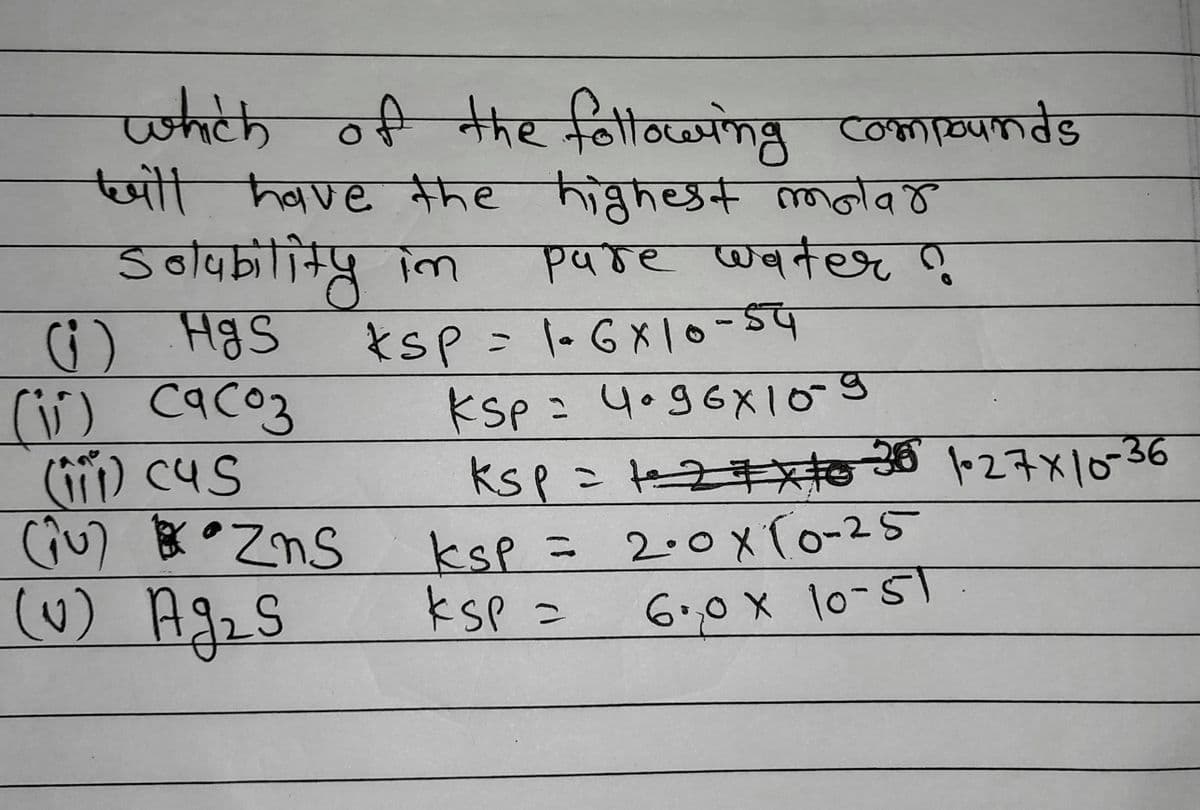 which of the following compounds
will have the highest molar
solubility in pure water ?
(i) HgS Ksp = 1.6x10-54
(ii) CaCO3 Ksp = 4.96x10-9
(iii) CuS Ksp = 1.27x10-36 1.27x10-36
(iv) ZnS Ksp = 2.0x10-25
(v) Ag2S Ksp = 6.0x 10-51